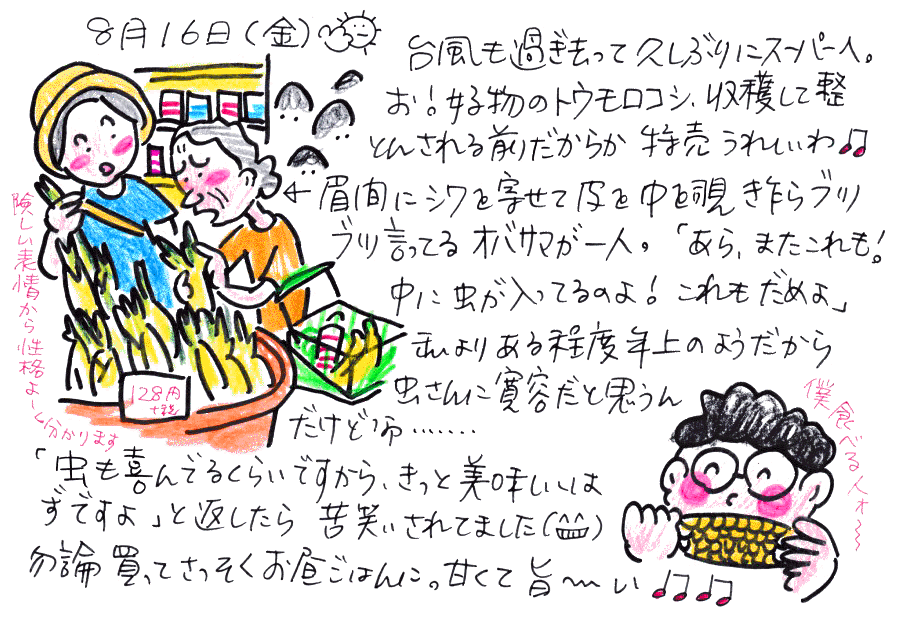 8月16日(金)
台風も過ぎ去って久しぶりにスーパーへ。
お!好物のトウモロコシ、収穫して整
とんされる前だからか 特売 うれしいわ♫
←眉間にシワを寄せて皮を中を覗き乍らブツ
ブツ言ってるオバサマが一人。「あら、またこれも!
中に虫が入ってるのよ!これもだめよ」
私よりある程度年上のようだから
虫さんに寛容だと思うん
だけど……
「虫も喜んでるくらいですから、きっと美味しいは
ずですよ」と返したら 苦笑いされてました
勿論買ってさっそくお昼ごはんに。甘くて旨〜い♫♫
険しい表情から性格よーく分かります
128円
僕食べる人ォ〜